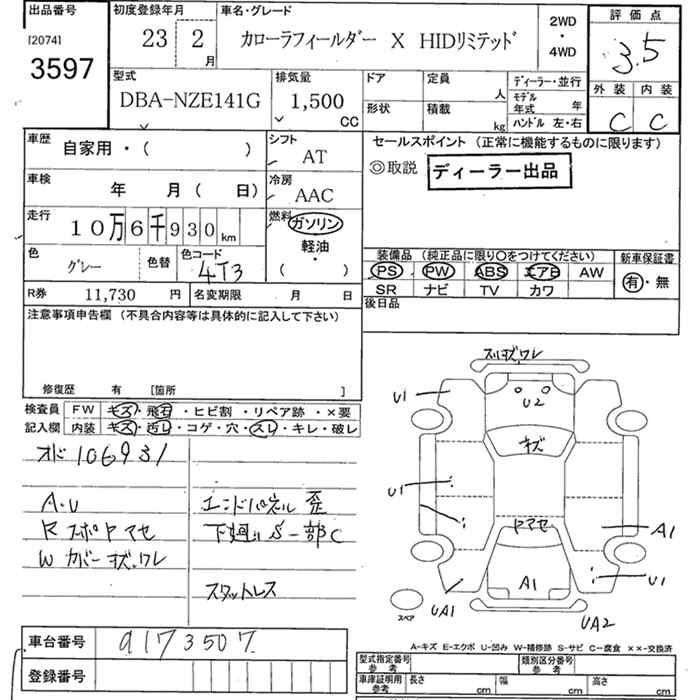 出品番号
[2074]
3597
初度登録年月
23 年 2 月
車名・グレード
カローラフィールダー X HIDリミテッド
2WD
・
4WD
評価点
3.5
外装 内装
C C
型式
DBA-NZE141G
排気量
1,500 CC
ドア
定員 人
形状
積載 kg
ディーラー・並行
モデル年式 年
ハンドル 左・右
車歴
自家用・( )
シフト
AT
車検
年 月( 日)
冷房
AAC
走行
10万6千930km
燃料
ガソリン
軽油
・
( )
色
グレー
色替
色コード
4T3
R券 11,730 円
名変期限 月 日
セールスポイント (正常に機能するものに限ります)
◎取説 ディーラー出品
装備品 (純正品に限り○をつけてください)
PS PW ABS エアB AW
SR ナビ TV カワ
新車保証書
有・無
後日品
注意事項申告欄 (不具合内容等は具体的に記入して下さい)
修復歴 有 [箇所 ]
検査員記入欄
FW キズ・飛石・ヒビ割・リペア跡・×要
内装 キズ・汚レ・コゲ・穴・スレ・キレ・破レ
オド 106931
A・U
R スポPヤマセ
W カバーキズ,ワレ
エンドパネル 歪
下廻り S 一部C
スタットレス
スリキズ,ワレ
U1
U2
キズ
U1
ヤマセ
A1
A1
U1
UA1
UA2
スペア
A-キズ E-エクボ U-凹み W-補修跡 S-サビ C-腐食 ××-交換済
車台番号 9173507
登録番号
型式指定番号 参考
類別区分番号 参考
車庫証明用 参考
長さ cm
幅 cm
高さ cm